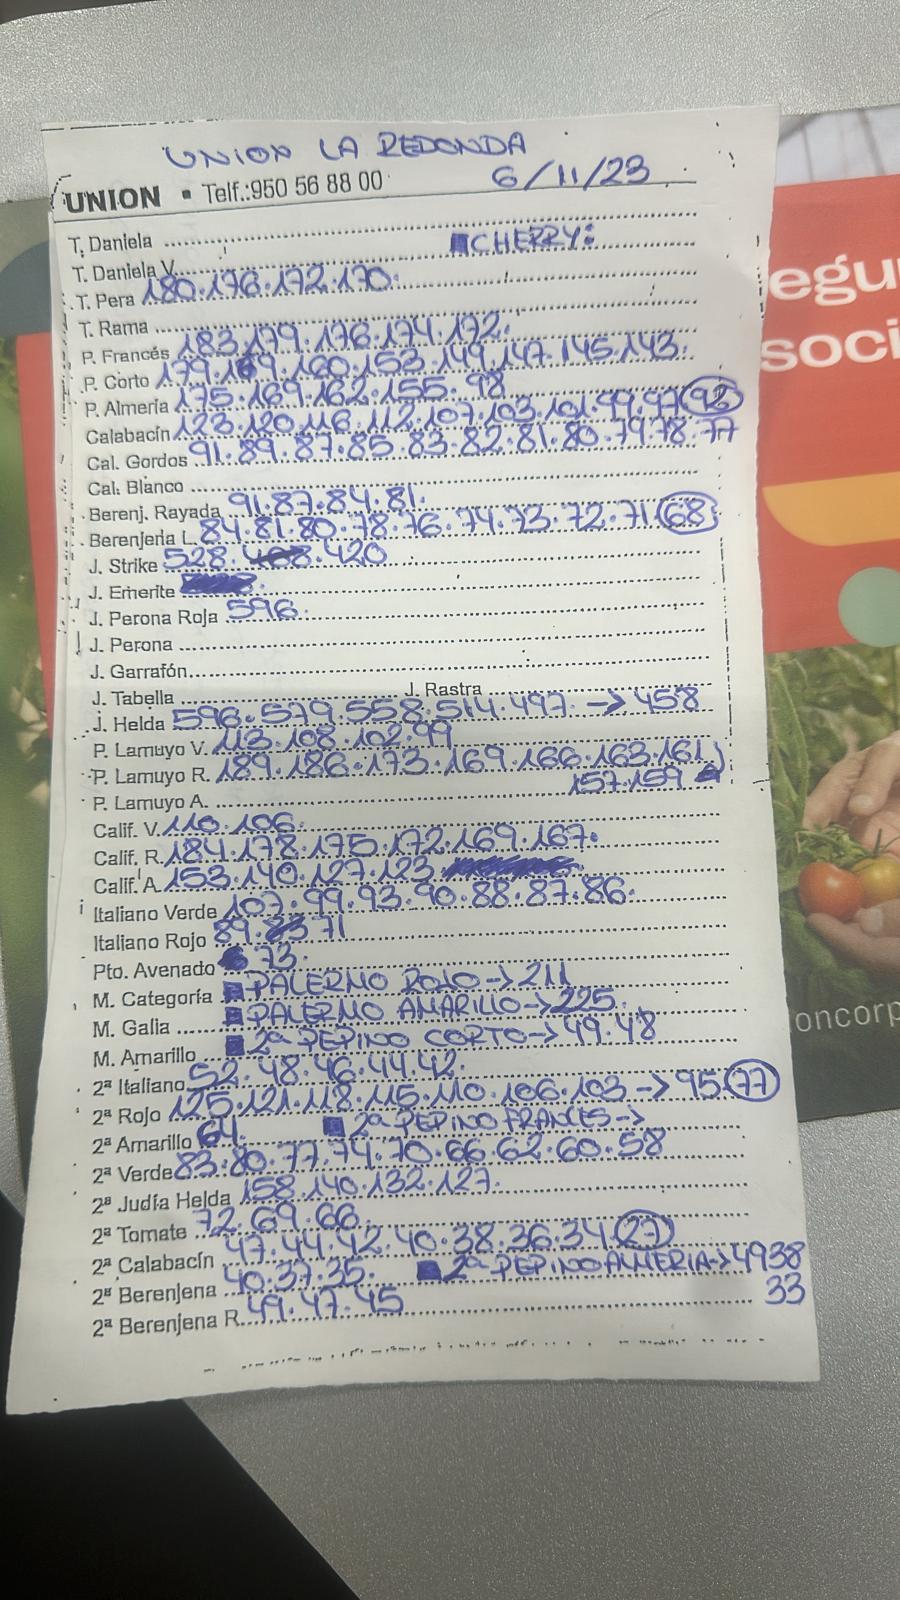 UNION LA REDONDA
UNION ▪ Telf.:950 56 88 00 6/11/23
T. Daniela
CHERRY:
T. Daniela V.
T. Pera 180.176.172.170.
T. Rama
P. Francés 183.179.176.174.172.
P. Corto 179.169.160.153.149.147.145.143.
P. Almería 175.169.162.155.98
Calabacín 123.120.116.112.107.103.101.99.97 92
Cal. Gordos 91.89.87.85.83.82.81.80.79.78.77
Cal. Blanco
Berenj. Rayada 91.87.84.81.
Berenjena L. 84.81.80.78.76.74.73.72.71 68
J. Strike 528. 420
J. Emerite
J. Perona Roja 596.
J. Perona
J. Garrafón
J. Tabella J. Rastra
J. Helda 596.579.558.514.497.→458
P. Lamuyo V. 113.108.102.99
P. Lamuyo R. 189.186.173.169.166.163.161
157.159
P. Lamuyo A.
Calif. V. 110.106.
Calif. R. 184.178.175.172.169.167.
Calif. A. 153.140.127.123
Italiano Verde 107.99.93.90.88.87.86.
Italiano Rojo 89. 71
Pto. Avenado 73.
M. Categoría PALERMO ROJO→211
M. Galia PALERMO AMARILLO→225.
M. Amarillo 2ª PEPINO CORTO→49.48
2ª Italiano 52.48.46.44.42.
2ª Rojo 125.121.118.115.110.106.103→95 77
2ª Amarillo 64. 2ª PEPINO FRANCES→
2ª Verde 83.80.77.74.70.66.62.60.58
2ª Judía Helda 158.140.132.127.
2ª Tomate 72.69.66.
2ª Calabacín 47.44.42.40.38.36.34. 27
2ª Berenjena 40.37.35. 2ª PEPINO ALMERIA→4938
33
2ª Berenjena R. 49.47.45
egu
soci
oncorp